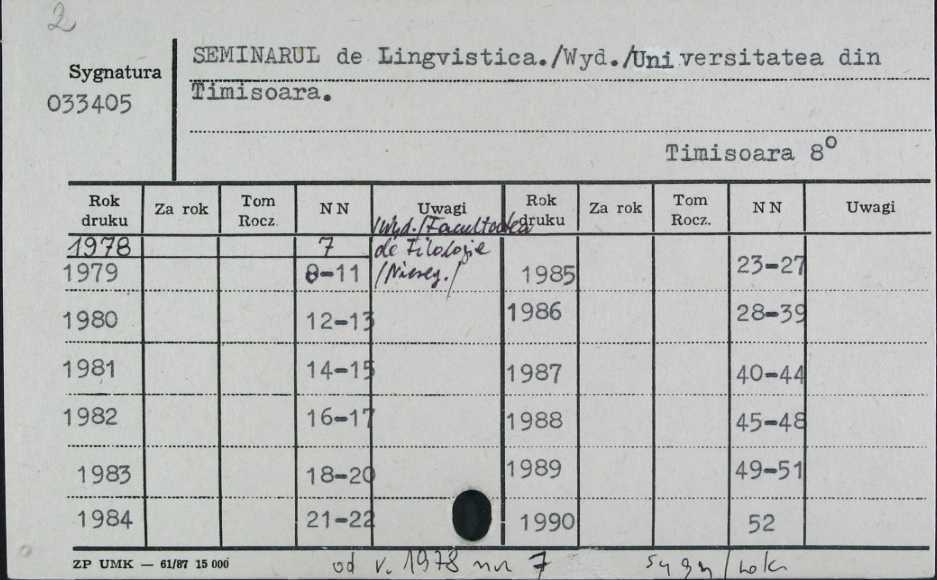 2
SEMINARUL de Lingvistica./Wyd./Universitatea din
Sygnatura
Timisoara.
033405
Timisoara 8°
Rok druku Za rok Tom Rocz. NN Uwagi Rok druku Za rok Tom Rocz. NN Uwagi
/Wyd./Facultatea
1978 7 de Filologie
1979 8-11 /Niereg./ 1985 23-27
1980 12-13 1986 28-39
1981 14-15 1987 40-44
1982 16-17 1988 45-48
1983 18-20 1989 49-51
1984 21-22 1990 52
ZP UMK — 61/87 15 000 od r. 1978 nr 7